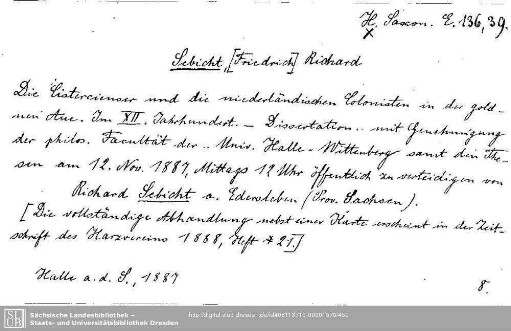 H. Saxon. E. 136, 39.
x
Sebicht, [Friedrich] Richard
Die Cistercienser und die niederländischen Colonisten in der gold-
nen Aue. Im XII. Jahrhundert. – Dissertation .. mit Genehmigung
der philos. Facultät der .. Univ. Halle-Wittenberg samt den The-
sen am 12. Nov. 1887, Mittags 12 Uhr öffentlich zu verteidigen von
Richard Sebicht a. Edersleben (Prov. Sachsen).
[Die vollständige Abhandlung nebst einer Karte erscheint in der Zeit-
schrift des Harzvereins 1888, Heft 21]
Halle a. d. S., 1887
8.
SLUB
Sächsische Landesbibliothek –
Staats- und Universitätsbibliothek Dresden